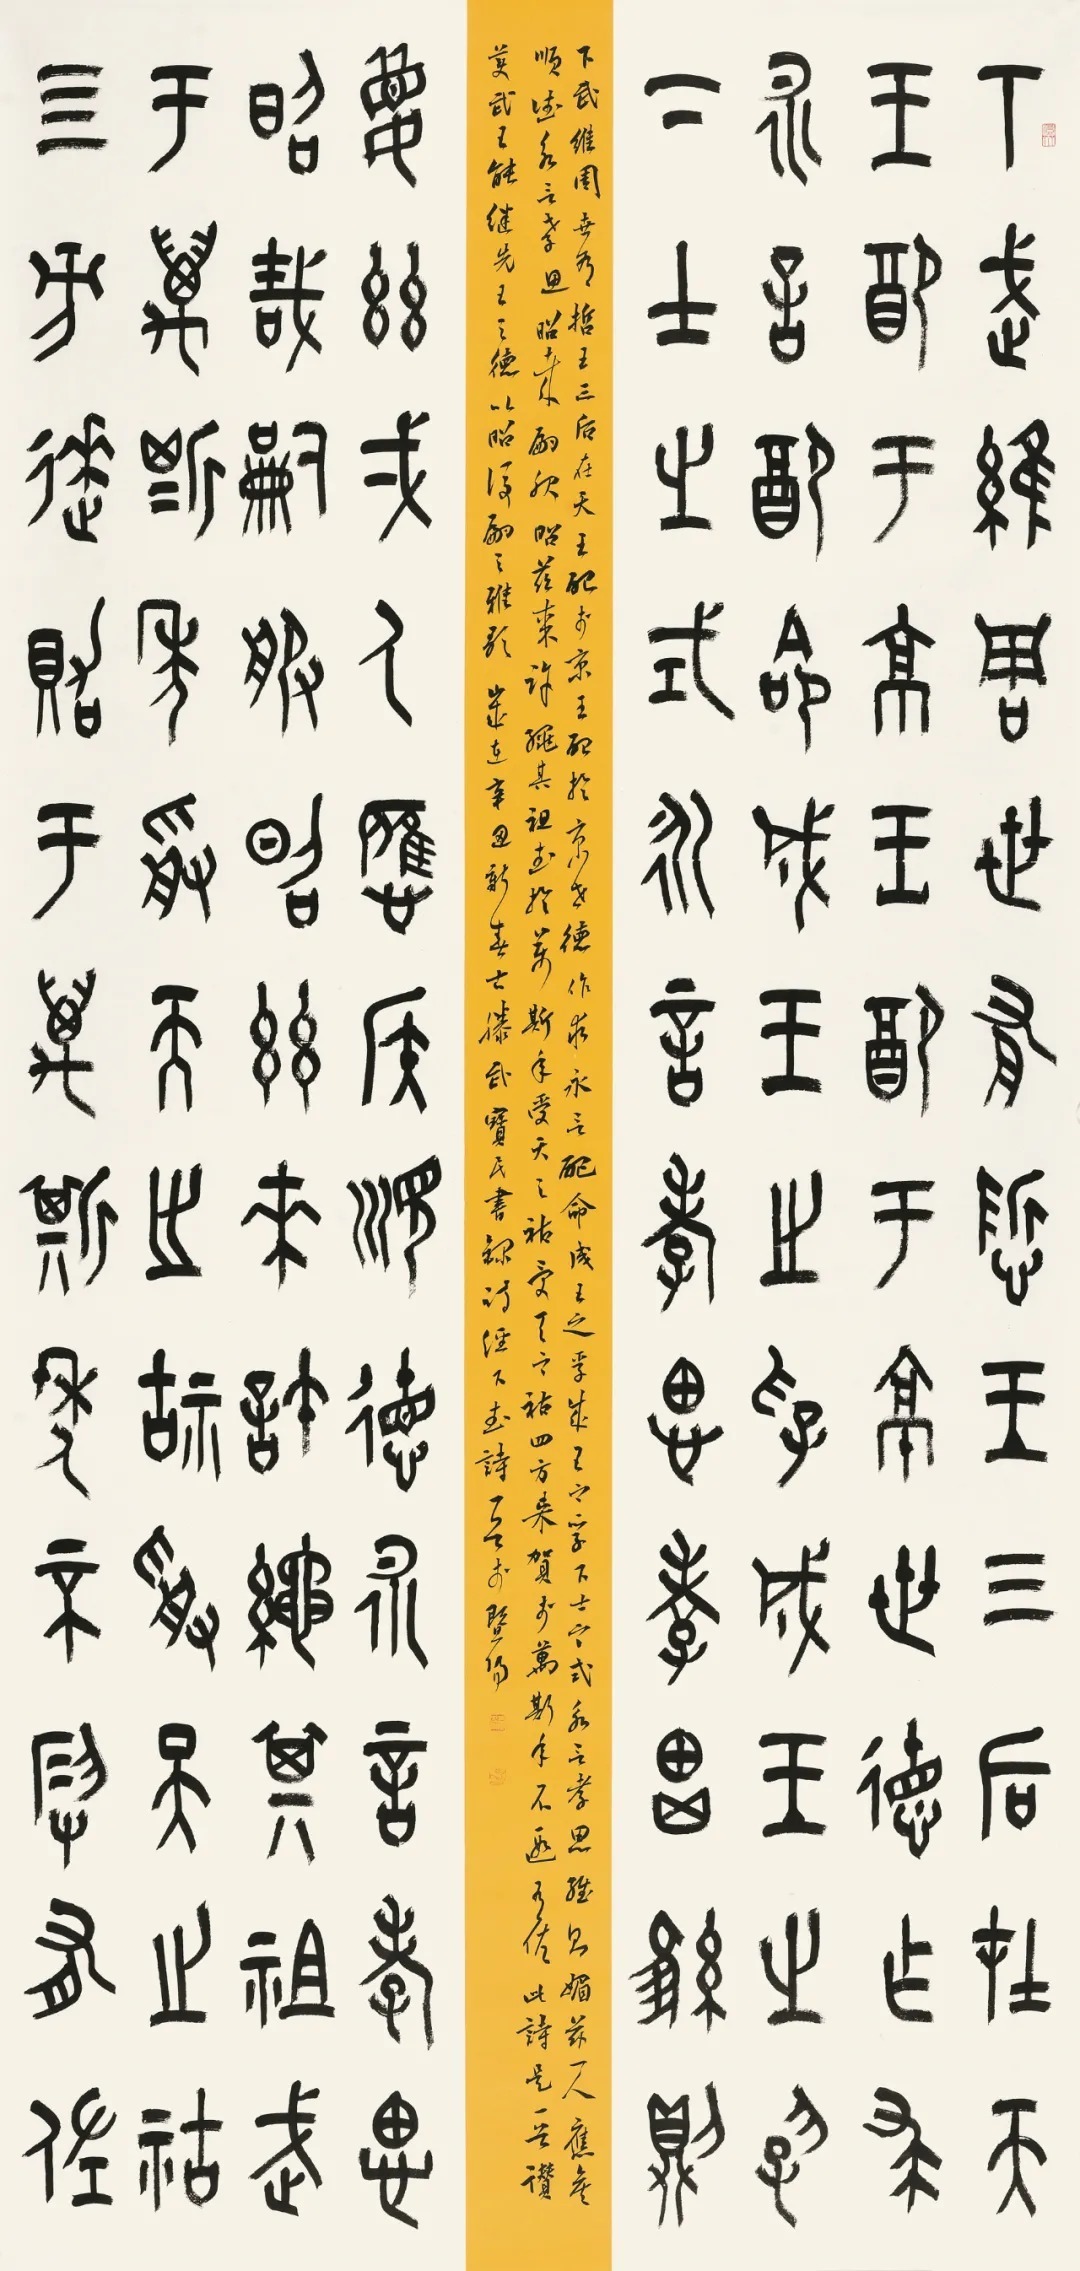 下武維周世有哲王三后在天
王配于京王配于京世德作求
永言配命成王之孚成王之孚
下土之式永言孝思孝思維則
下武維周世有哲王三后在天王配于京王配於京世德作求永言配命成王之孚成王之孚下土之式永言孝思維則媚茲一人應侯
順德永言孝思昭哉嗣服昭茲來許繩其祖武於萬斯年受天之祜受天之祜四方來賀于萬斯年不遐有佐此詩是一首讚
美武王能继先王之德以昭後嗣之雅歌歲在辛丑新春古滕武寶民書錄詩經下武詩一首于暨陽
媚茲弌人應侯順德永言孝思
昭哉嗣服昭茲來許繩其祖武
于萬斯年受天之祜受天之祜
四方來賀于萬斯年不遐有佐